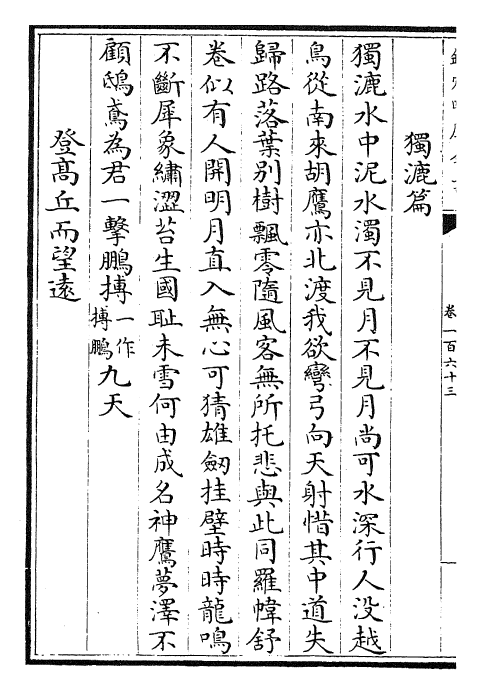 卷一百六十三
獨漉篇
獨漉水中泥水濁不見月不見月尚可水深行人没越
鳥從南來胡鷹亦北渡我欲彎弓向天射惜其中道失
歸路落葉别樹飄零隨風客無所托悲與此同羅幃舒
卷似有人開明月直入無心可猜雄劒挂壁時時龍鳴
不斷犀象繡澀苔生國耻未雪何由成名神鷹夢澤不
顧鴟鳶為君一擊鵬摶一作摶鵬九天
登高丘而望遠